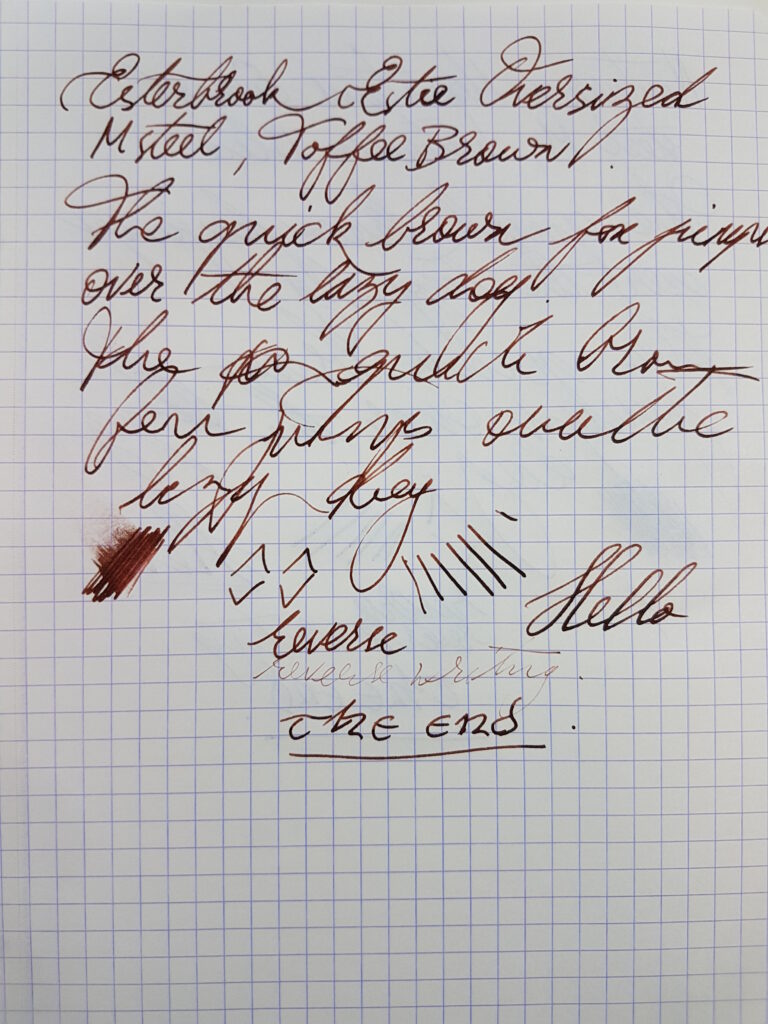 Esterbrook Estie Oversized
M steel, Toffee Brown.
The quick brown fox jumps
over the lazy dog.
the quick brown
fox jumps over the
lazy dog
Hello
Reverse
reverse writing.
THE END.